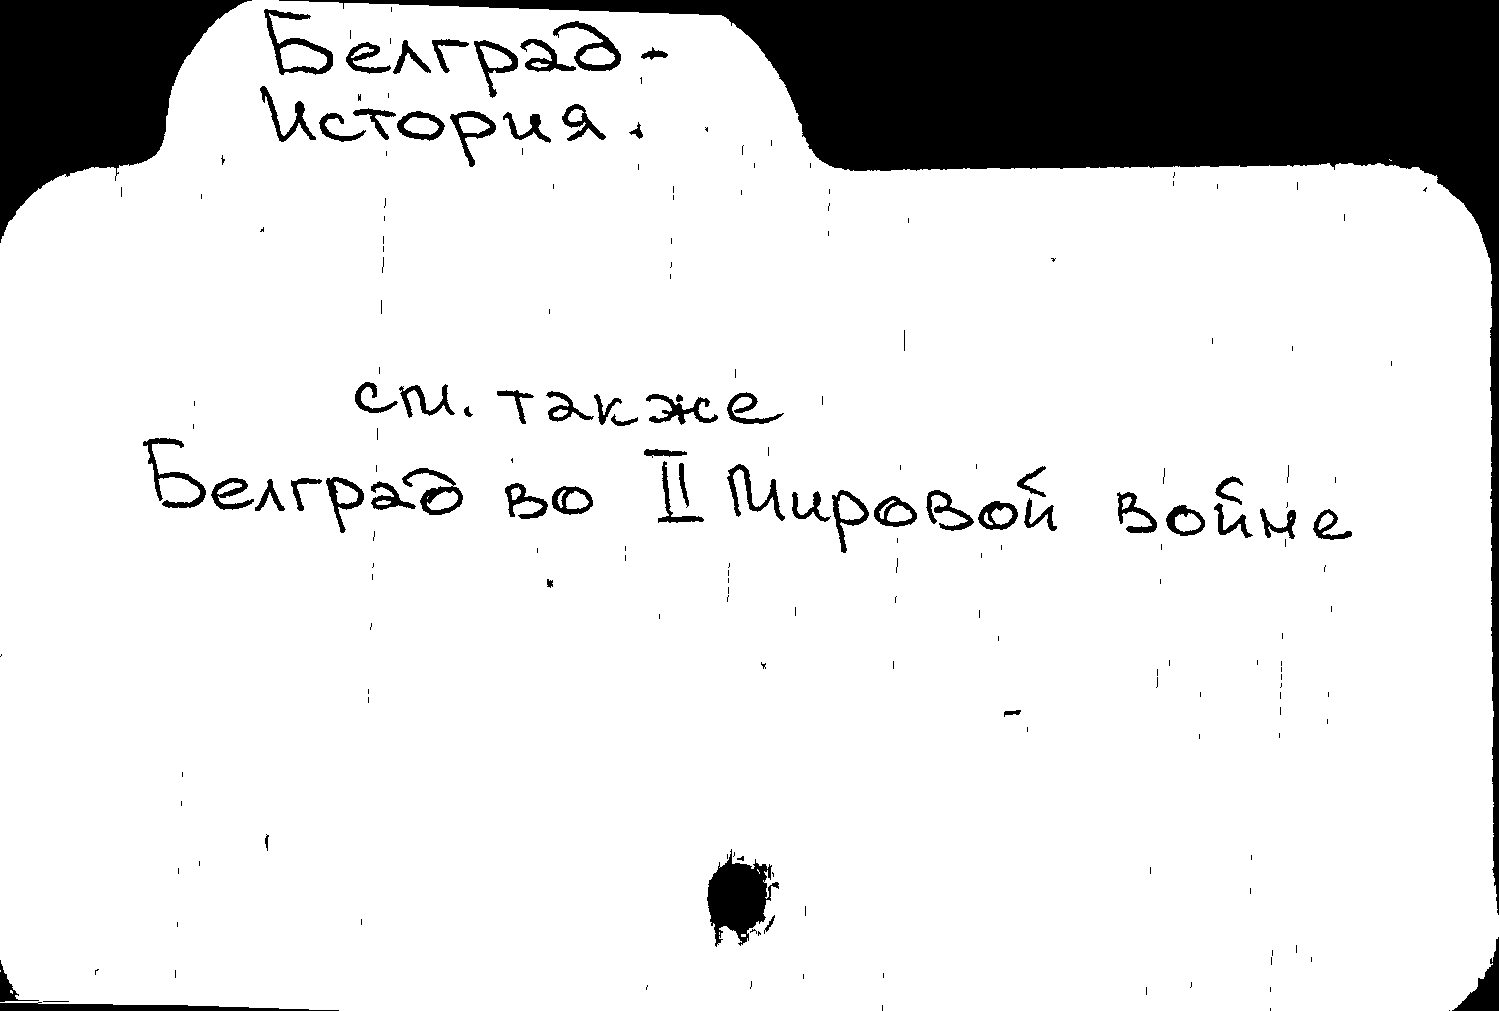 Белград -
История.
см. также
Белград во II Мировой войне